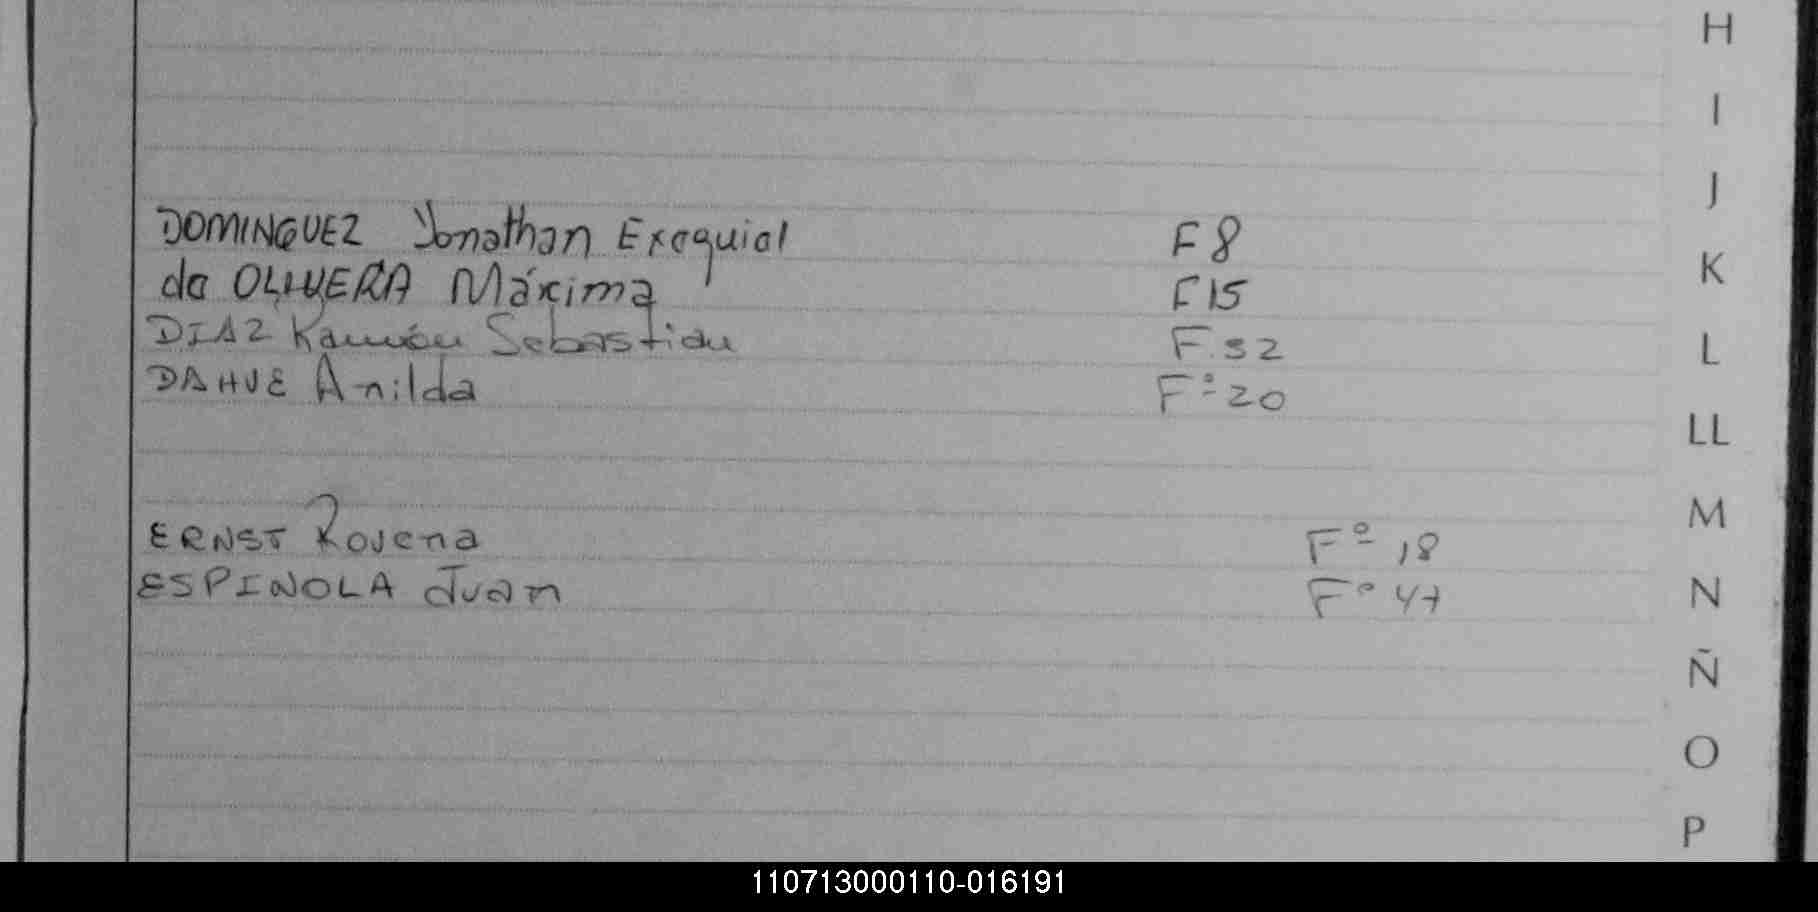 H
I
J
DOMINGUEZ Yonathan Exequiel F 8
K
de OLIVERA Máxima F 15
DIAZ Ramón Sebastian F. 32
L
DAHUE Anilda Fº 20
LL
M
ERNST Rosena Fº 18
ESPINOLA Juan Fº 47
N
Ñ
O
P
110713000110-016191